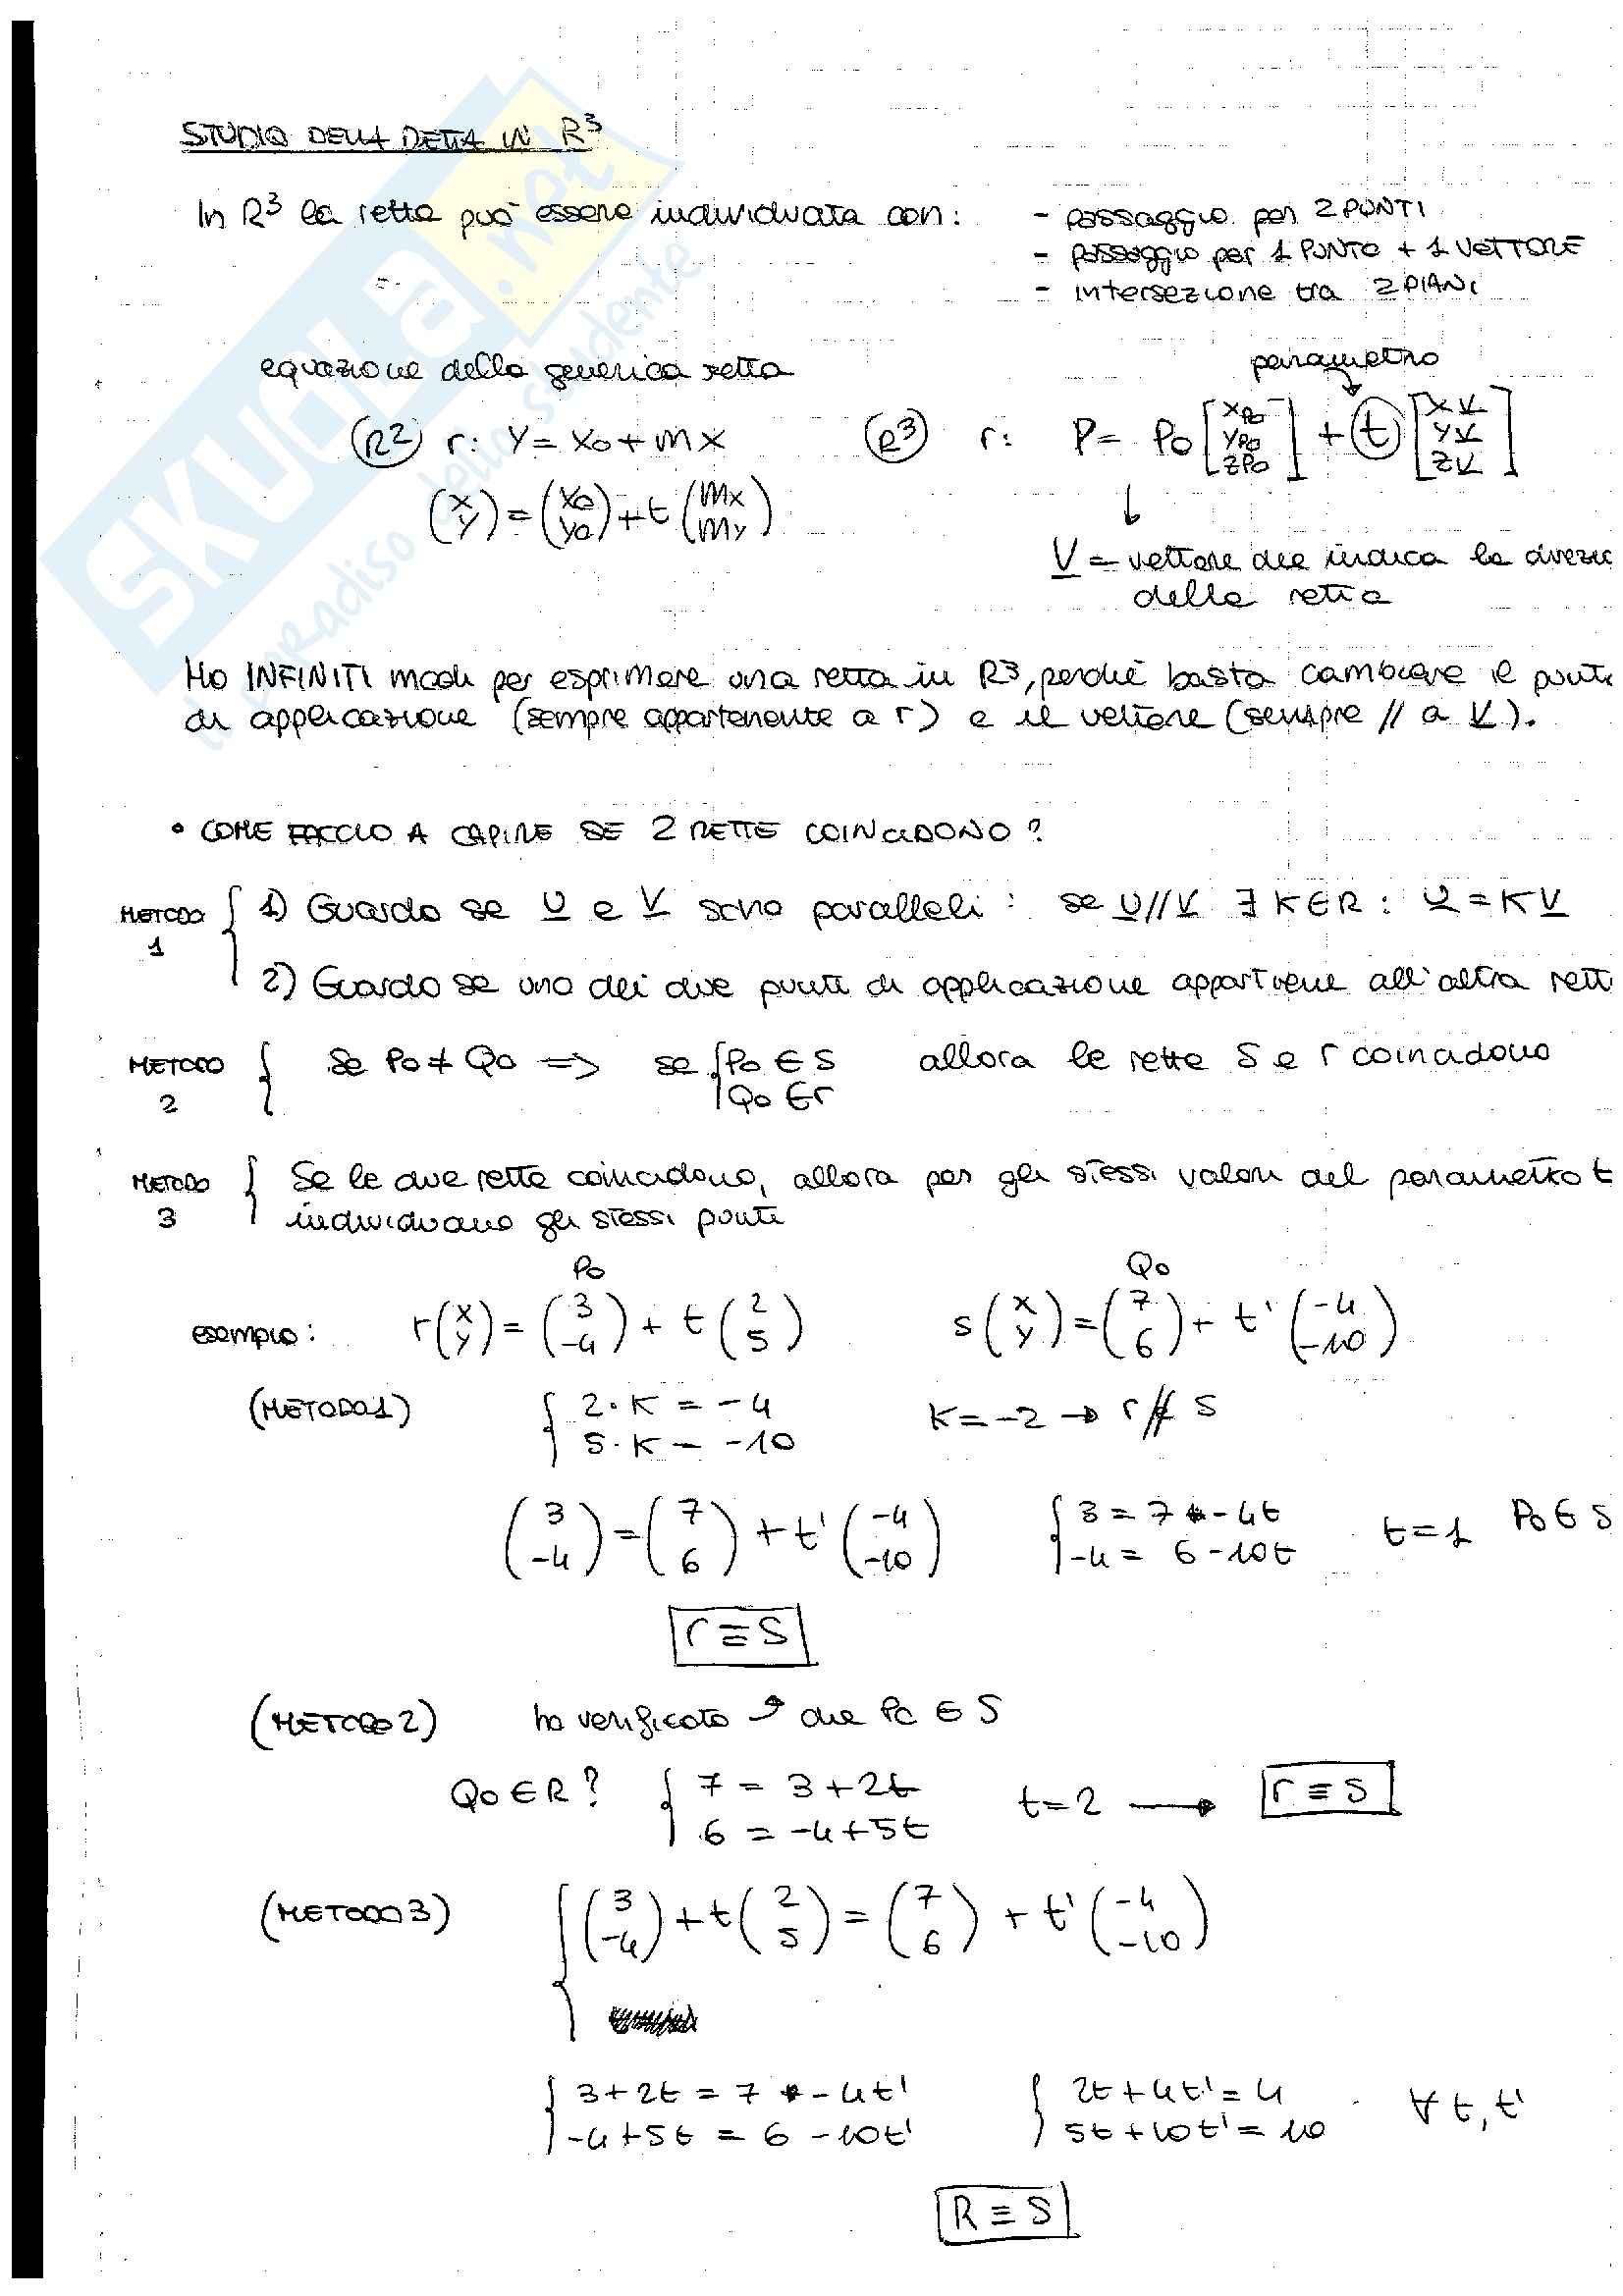 STUDIO DELLA RETTA IN R³
In R³ la retta può essere individuata con: - passaggio per 2 PUNTI
- passaggio per 1 PUNTO + 1 VETTORE
- intersezione tra 2 PIANI
equazione della generica retta
parametro
(R²) r: y = x₀ + mx
(R³) r: P = P₀ [xP₀ yP₀ zP₀] + t [xV yV zV]
(x y) = (x₀ y₀) + t (mx my)
↓
V = vettore che indica la direzi
della retta
Ho INFINITI modi per esprimere una retta in R³, perché basta cambiare il punt
di applicazione (sempre appartenente a r) e il vettore (sempre // a V).
• COME FACCIO A CAPIRE SE 2 RETTE COINCIDONO?
METODO 1 { 1) Guardo se U e V sono paralleli: se U//V ∃ K∈R : U = KV
2) Guardo se uno dei due punti di applicazione appartiene all'altra rett
METODO 2 { se P₀ ≠ Q₀ => se { P₀ ∈ S Q₀ ∈ r allora le rette S e r coincidono
METODO 3 { Se le due rette coincidono, allora per gli stessi valori del parametro t
individuano gli stessi punti
P₀ Q₀
esempio: r (x y) = (3 -4) + t (2 5) s (x y) = (7 6) + t' (-4 -10)
(METODO 1) { 2·K = -4 5·K = -10 K = -2 → r // s
(3 -4) = (7 6) + t' (-4 -10) { 3 = 7 - 4t -4 = 6 - 10t t = 1 P₀ ∈ S
r ≡ S
(METODO 2) ho verificato ↗ che P₀ ∈ S
Q₀ ∈ R? { 7 = 3 + 2t 6 = -4 + 5t t = 2 → r ≡ S
(METODO 3) { (3 -4) + t (2 5) = (7 6) + t' (-4 -10)
{ 3 + 2t = 7 - 4t' -4 + 5t = 6 - 10t' { 2t + 4t' = 4 5t + 10t' = 10 ∀ t, t'
R ≡ S
SKUOLA.net
il paradiso dello studente